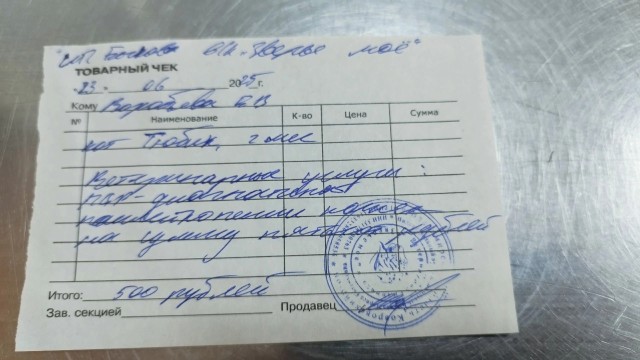 "ИП Бычкова в/к "Зверье моё"
ТОВАРНЫЙ ЧЕК
23 06 2025 г.
Кому Воробьева Е В
№ Наименование К-во Цена Сумма
кот Тюбик, 2 мес
Ветеринарные услуги :
диагностика
панлейкопении кошек
на сумму пятьсот рублей
Итого: 500 рублей
Зав. секцией Продавец